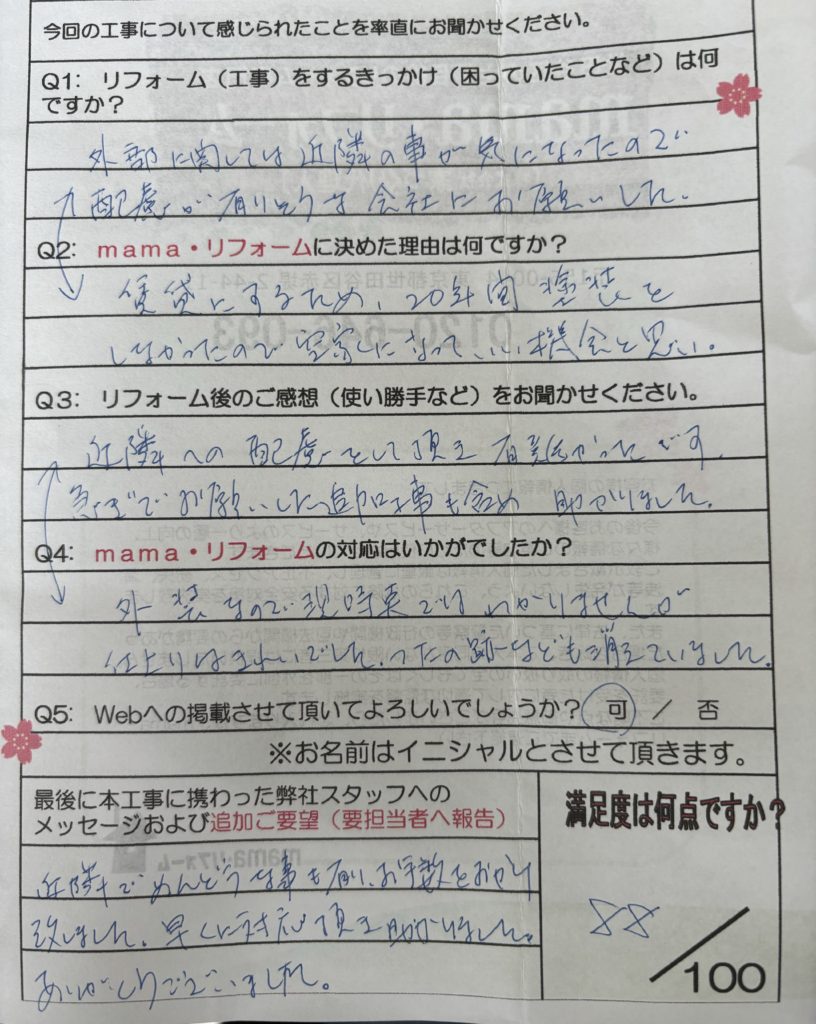 今回の工事について感じられたことを率直にお聞かせください。
Q1: リフォーム（工事）をするきっかけ（困っていたことなど）は何
ですか？
外部に関しては近隣の事が気になったので
配慮が有りそうな会社にお願いした。
Q2: mama・リフォームに決めた理由は何ですか？
賃貸にするため、20年間塗装を
しなかったので空家になっていい機会と思い。
Q3: リフォーム後のご感想（使い勝手など）をお聞かせください。
近隣への配慮をして頂き有難かったです。
急ぎでお願いした追加工事も含め助かりました。
Q4: mama・リフォームの対応はいかがでしたか？
外装なので現時点ではわかりませんが
仕上りはきれいでした。つたの跡なども消えていました。
Q5: Webへの掲載させて頂いてよろしいでしょうか？ 可 ／ 否
※お名前はイニシャルとさせて頂きます。
最後に本工事に携わった弊社スタッフへの
メッセージおよび追加ご要望（要担当者へ報告）
近隣でめんどうな事も有り、お手数をおかけ
致しました。早くに対応頂き助かりました。
ありがとうございました。
満足度は何点ですか？
88
／100